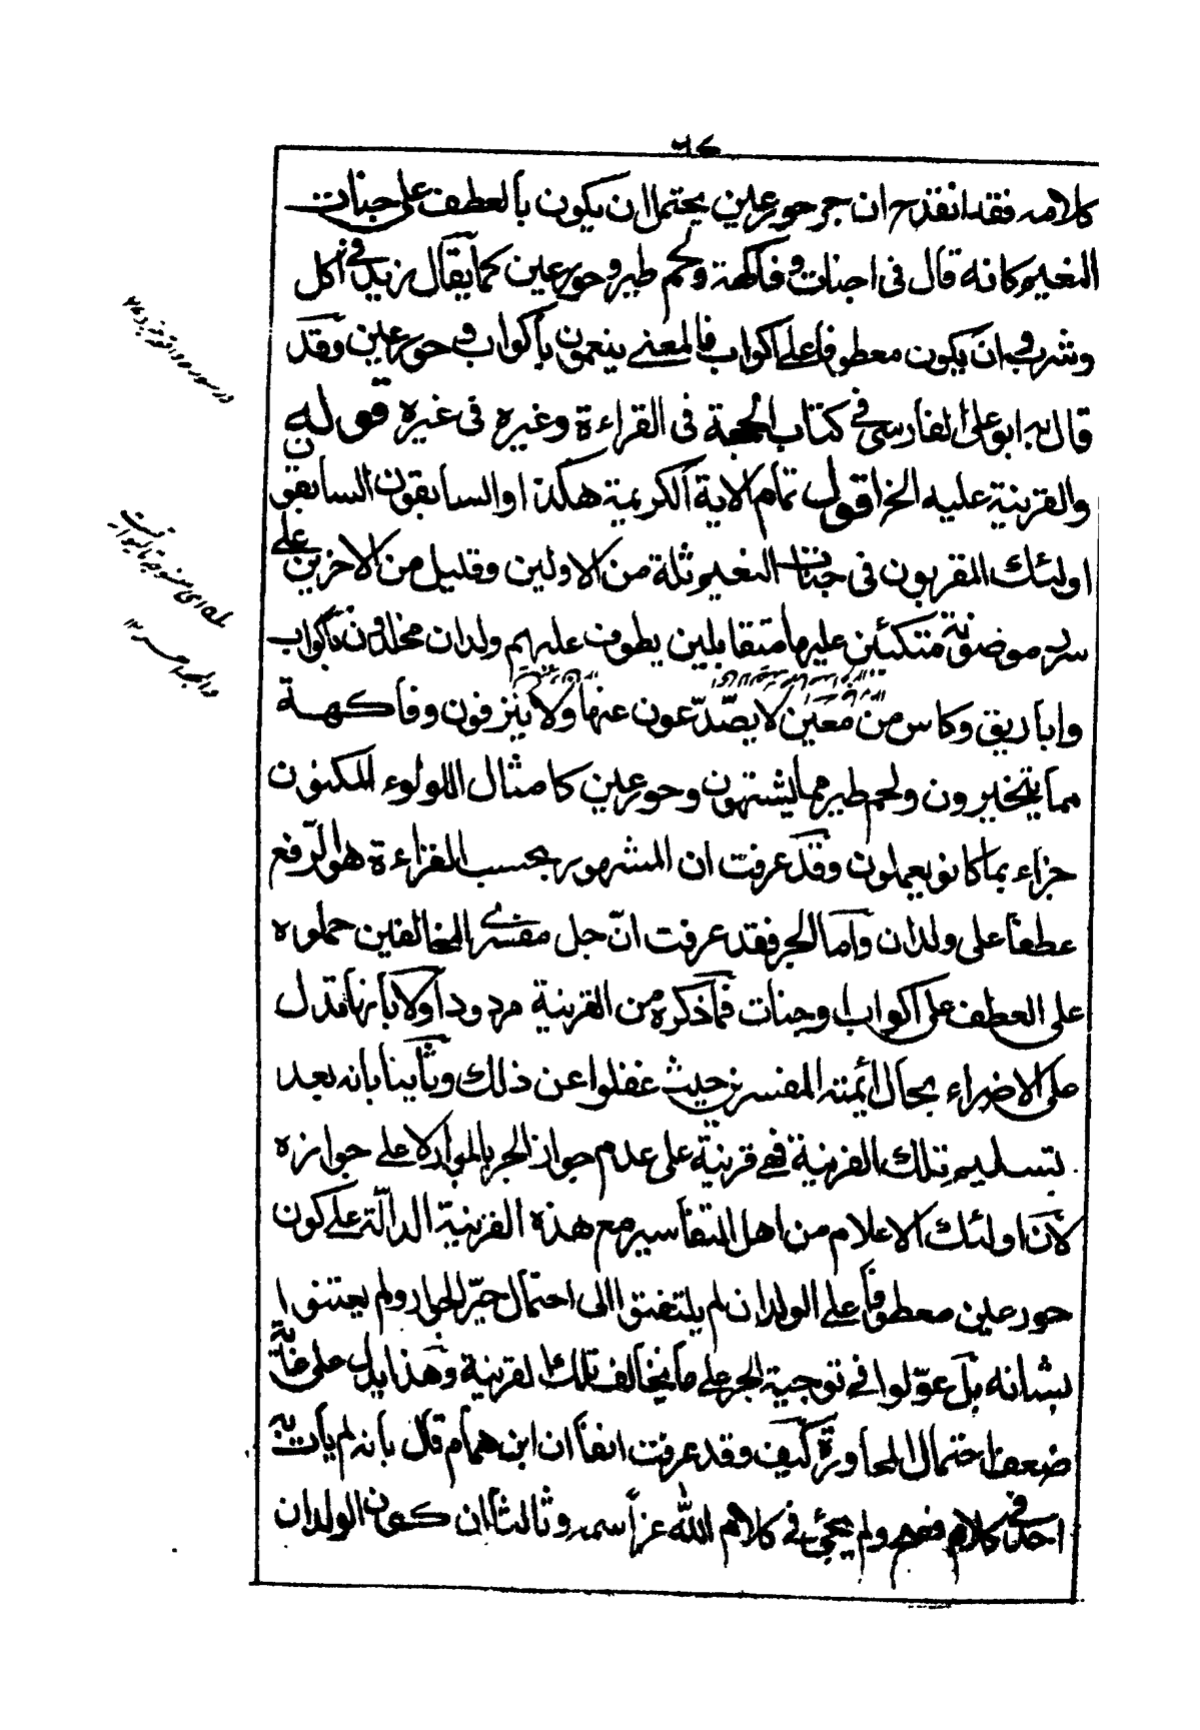 ٦٧
كلامه فقد انقدح ان جر حور عين يحتمل ان يكون بالعطف على جنات
النعيم كانه قال فى اجنات وفاكهة ولحم طير وحور عين كما يقال زيد فى اكل
وشرب وان يكون معطوفا على اكواب فالمعنے ينعمون باكواب و حور عين وقد
قال به ابو على الفارسى فى كتاب الحجة فى القراءة وغيره فى غيره قوله
والقرينة عليه الخ اقول تمام الاية الكريمة هكذا والسابقون السابقون
اولئك المقربون فى جنات النعيم ثلة من الاولين وقليل من الاخرين على
سرر موضونة متكئين عليها متقابلين يطوف عليهم ولدان مخلدون باكواب
واباريق وكاس من معين لا يصدّعون عنها ولا ينزفون وفاكهة
مما يتخيرون ولحم طير مما يشتهون وحور عين كامثال اللولوء المكنون
جزاء بما كانو يعملون وقد عرفت ان المشهور بحسب القراءة هو الرفع
عطفا على ولدان واما الجر فقد عرفت انّ جل مفسرى المخالفين حملوه
على العطف على اكواب او جنات فما ذكره من القرينة مردود اولا بانها تدل
على الاضراء بحال ائمته المفسرين حيث غفلوا عن ذلك وثانيا بانه بعد
تسليم تلك القرينة فهى قرينة على عدم جواز الجر بالجوار لا على جوازه
لأن اولئك الاعلام من اهل التفاسير مع هذه القرينة الدالّة على كون
حور عين معطوفا على الولدان لم يلتفتوا الى احتمال جرّ الجوار ولم يعتنوا
بشانه بل عوّلوا فى توجيه الجر على ما يخالف تلك القرينة وهذا يدل على غاية
ضعف احتمال المجاورة كيف وقد عرفت انفا ان ابن همام قال بانه لم يات به
احد فى كلام فصيح ولم يجئ فى كلام الله عز اسمه وثالثا ان كون الولدان
در سوره واقعه